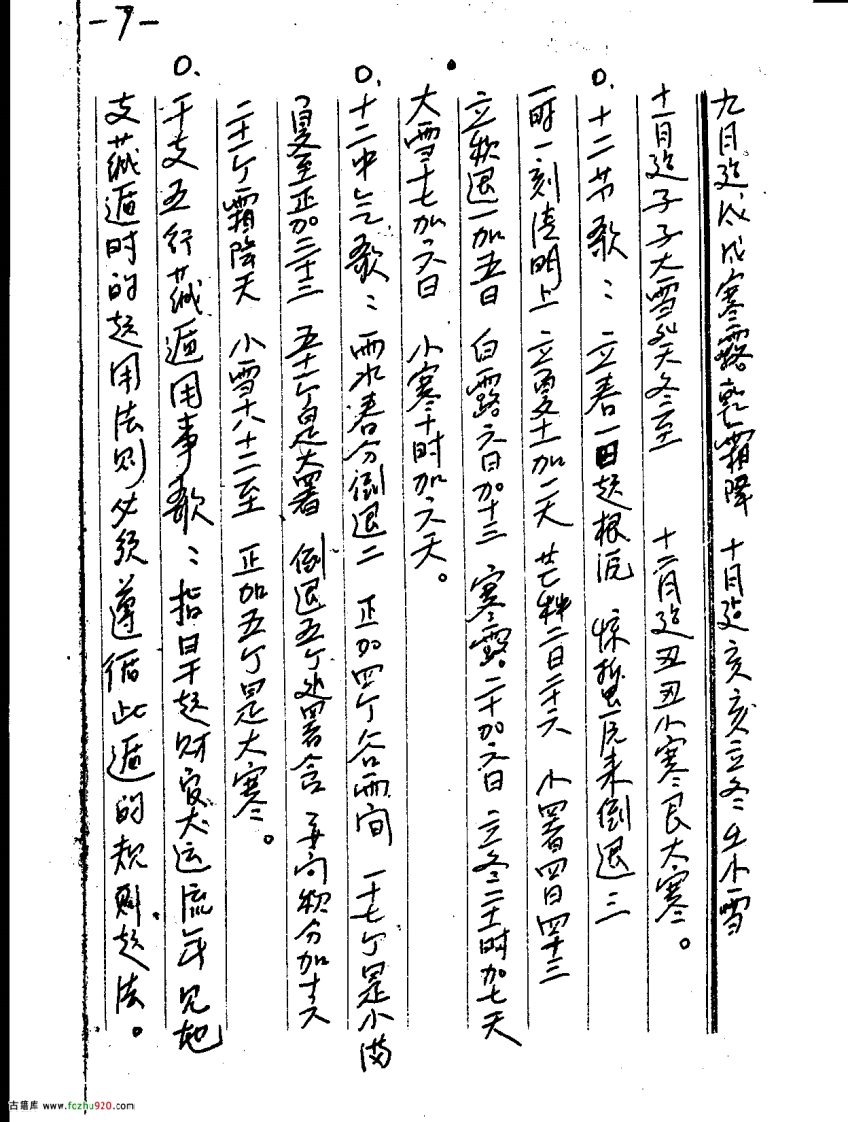 -7-
九月建戌戌寒露乾霜降 十月建亥亥立冬壬小雪
十一月建子子大雪癸冬至 十二月建丑丑小寒艮大寒。
0.十二节歌:立春一日起根 惊蛰 未倒退三
一时一刻清明上 立夏十一加二天 芒种二日二十六 小署四日四十三
立秋退一加五日 白露六日加十三 寒露二十加六日 立冬二十时加七天
大雪十七加六日 小寒十时加六天。
0.十二中气歌:雨水春分倒退二 正加四个谷雨间 一十七个是小满
夏至正加二十三 五十一个是大署 倒退五个处署含 秋分加十六
二十一个霜降天 小雪十八十二至 正加五个是大寒。
0.干支五行藏遁用事歌:指日干起财官大运流年见地
支藏遁时的起用法则必须遵循此遁的规则起法。
古籍库 www.fczhu920.com